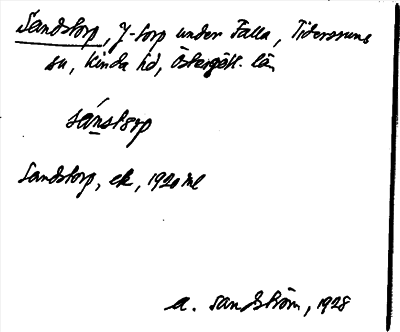 Sandstorp, f-torp under Falla, Tidersrums
sn, Kinda hd, Östergötl. län
sánstorp
Sandstorp, ek, 1920
A. Sandström, 1928